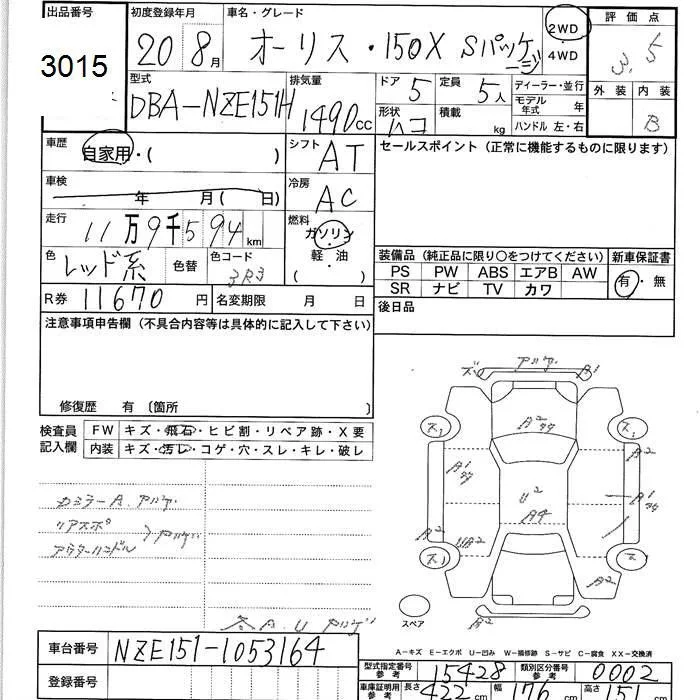 出品番号
3015
初度登録年月
20 8月
車名・グレード
オーリス・150X Sパッケージ
2WD
・
4WD
評価点
3.5
外装 内装
B
型式
DBA-NZE151H
排気量
1490cc
ドア 5
定員 5人
形状 ハコ
積載 kg
ディーラー・並行
モデル年式 年
ハンドル 左・右
車歴
自家用・( )
シフト AT
セールスポイント（正常に機能するものに限ります）
車検
年 月( 日)
冷房 AC
走行
11万9千594km
燃料
ガソリン
・
軽・油
( )
色
レッド系
色替
色コード
3R3
装備品（純正品に限り○をつけてください）
新車保証書
PS PW ABS エアB AW
有・無
SR ナビ TV カワ
R券 11670円
名変期限 月 日
後日品
注意事項申告欄（不具合内容等は具体的に記入して下さい）
修復歴 有〔箇所 〕
検査員
記入欄
FW キズ・飛石・ヒビ割・リペア跡・X要
内装 キズ・汚レ・コゲ・穴・スレ・キレ・破レ
スペア
A－キズ E－エクボ U－凹み W－補修跡 S－サビ C－腐食 XX－交換済
車台番号 NZE151-1053164
登録番号
型式指定番号
参考
15428
類別区分番号
参考
0002
車庫証明用
参考
長さ 422cm
幅 176cm
高さ 151cm